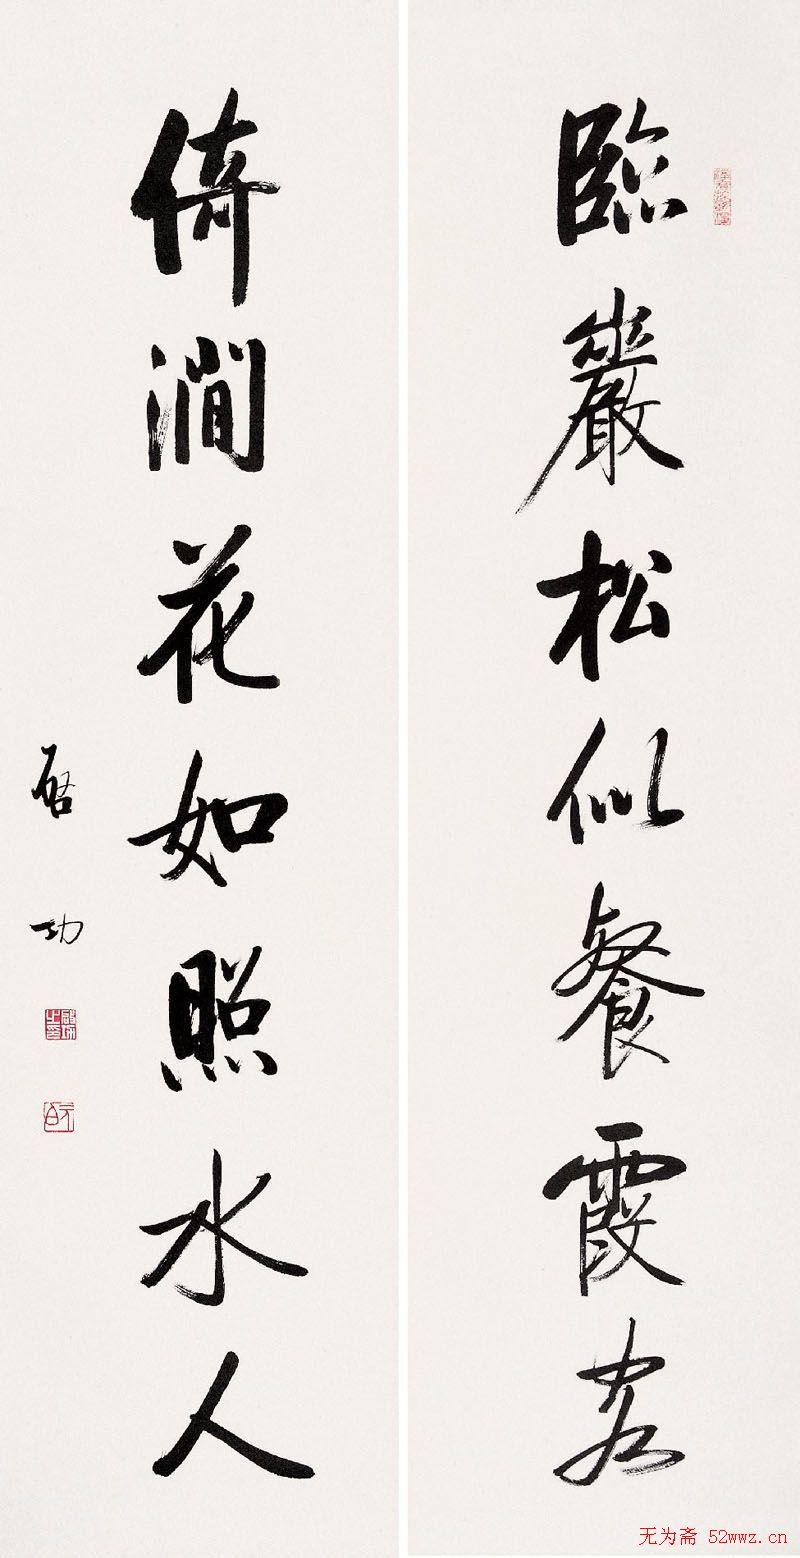 臨巖松似餐霞客
倚澗花如照水人
啓功
啓功之印
元白
无为斋 52wwz.cn